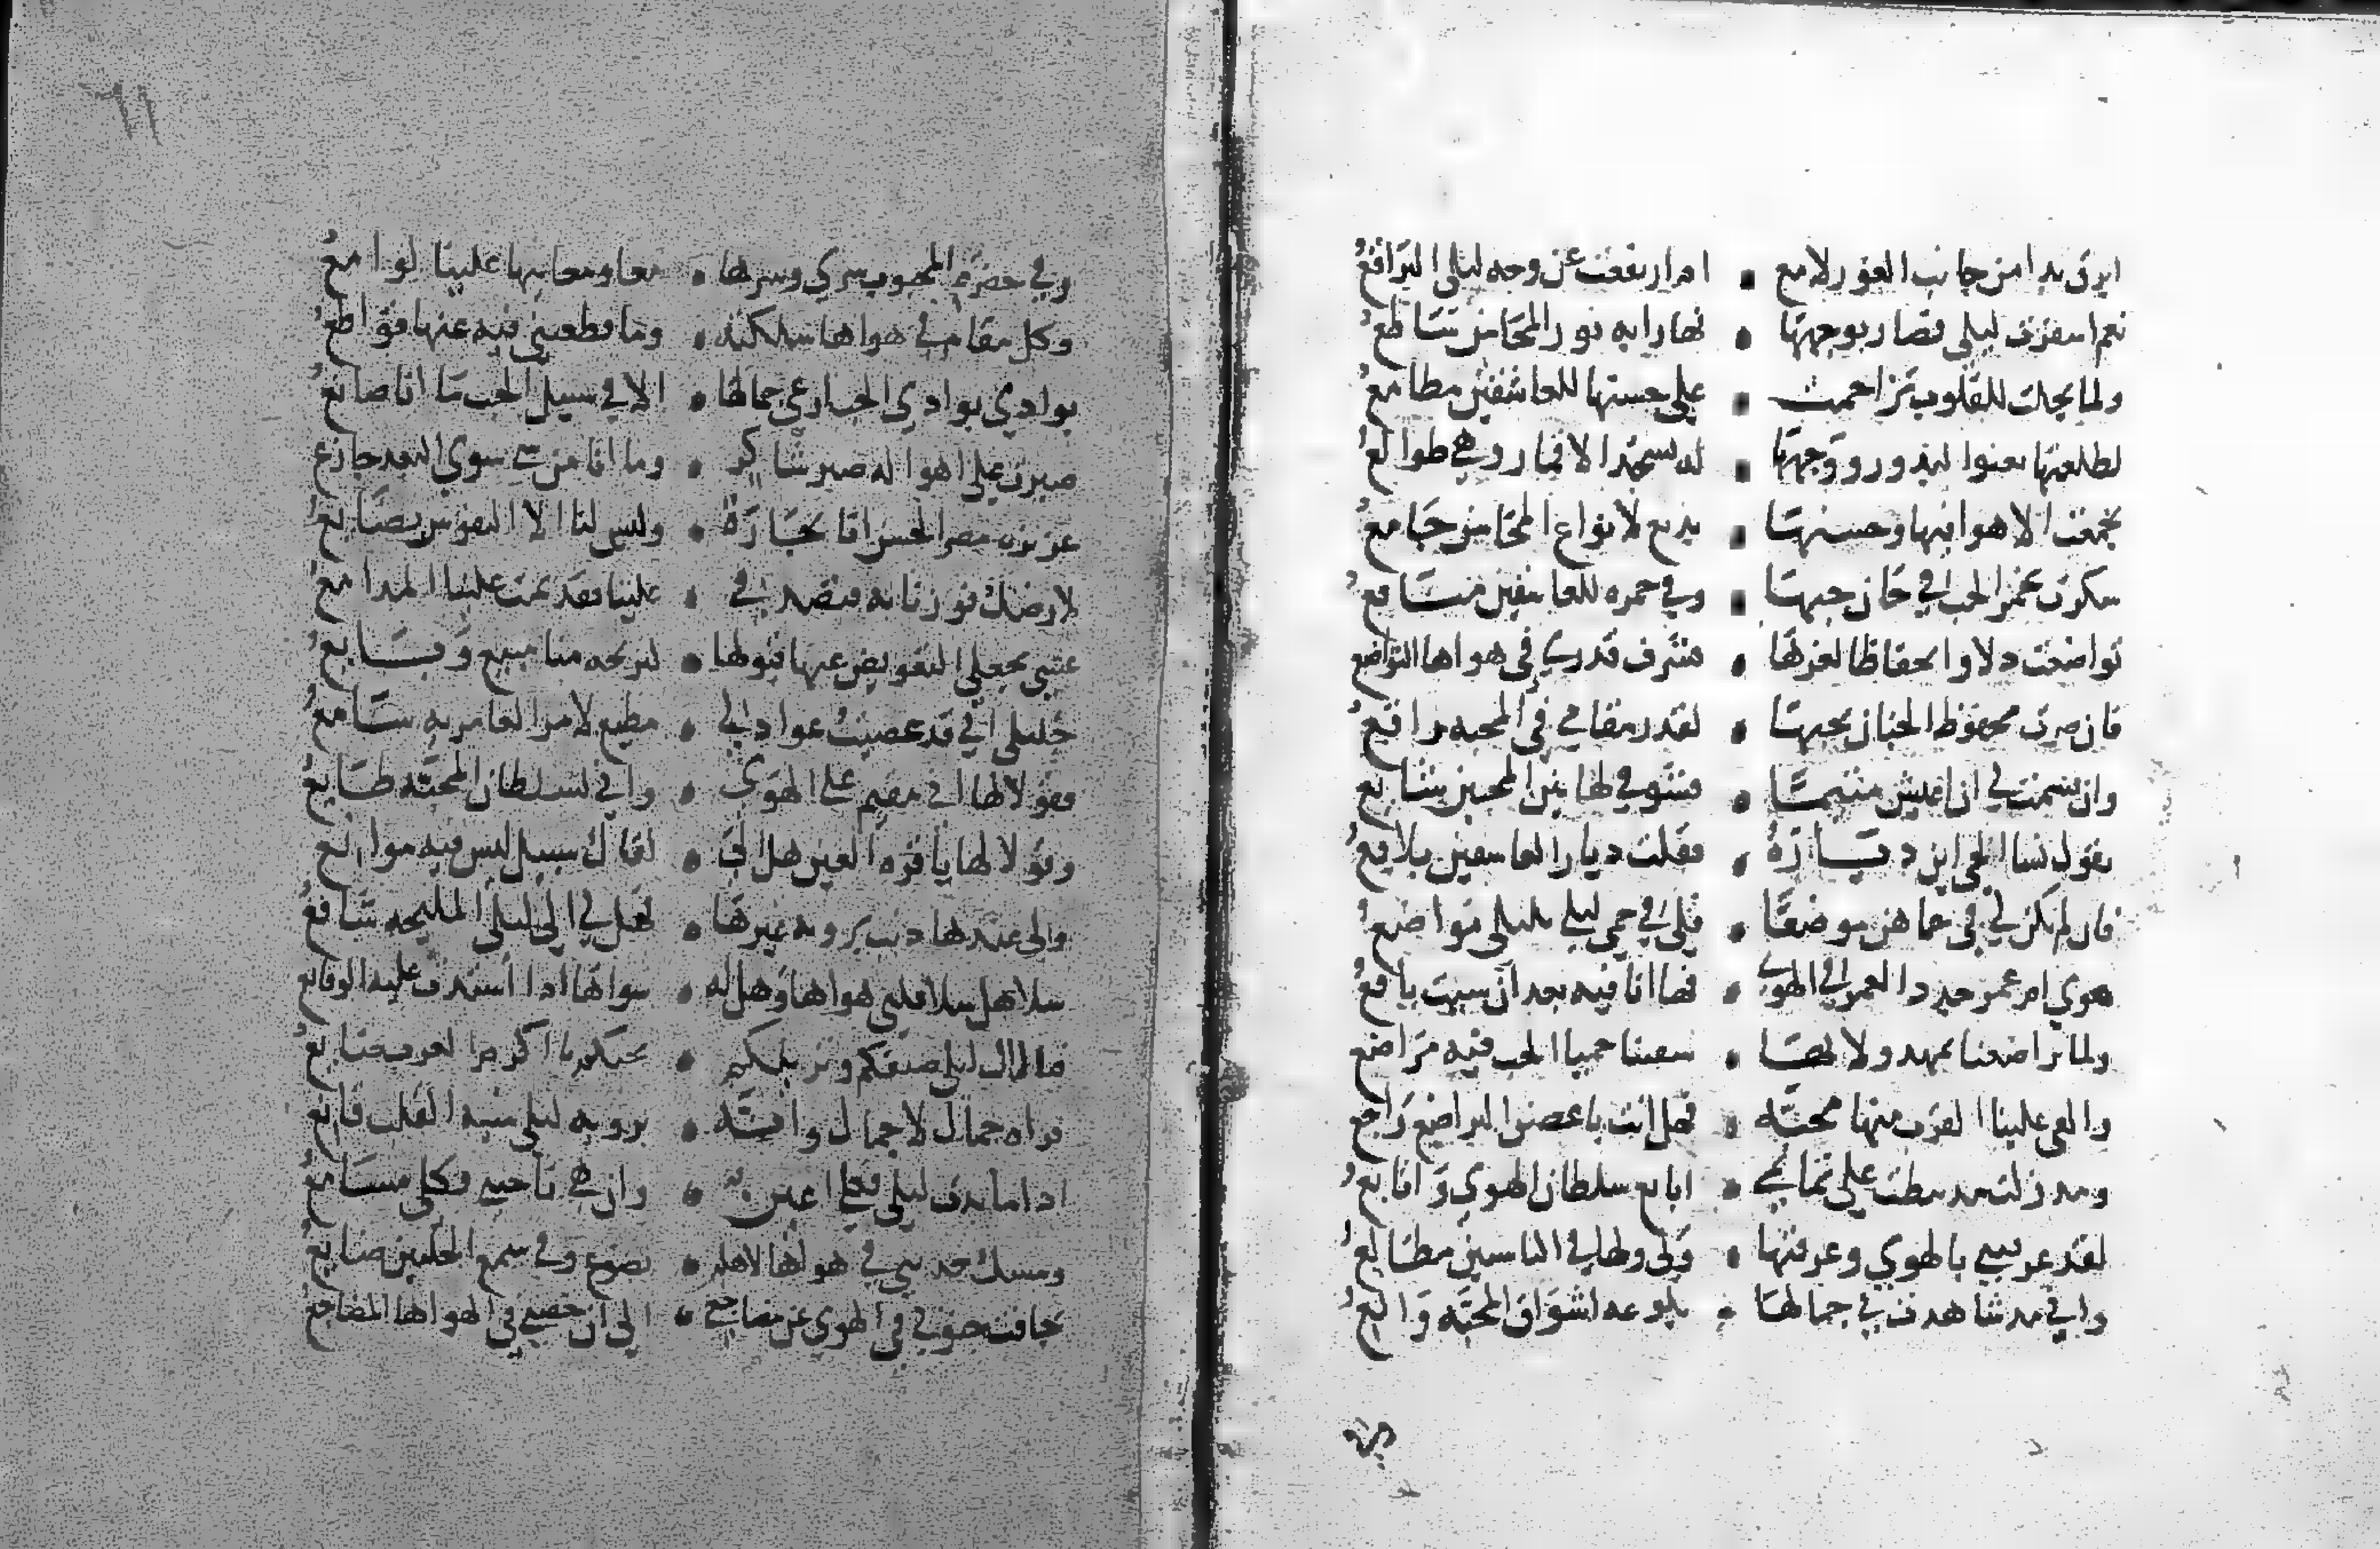 ابرق بدا من جانب الغور لامع • ام ارتفعت عن وجه ليلى البراقع
نعم اسفرت ليلى فصار بوجهها • نهارا به نور المحاسن ساطع
ولما تجلت للقلوب تزاحمت • على حسنها للعاشقين مطامع
لطلعتها تعنوا البدور ووجهها • له تسجد الاقمار وهي طوالع
تجمعت الاهوا فيها وحسنها • بديع لانواع المحاسن جامع
سكرت بخمر الحب في حان حبها • وفي خمره للعاشقين منافع
تواضعت ذلا وانخفاظا لعزها • فشرف قدري في هواها التواضع
فان صرت محفوظ الجناب بحبها • لقدر مقامي في المحبه رافع
وان قسمت لي ان اعيش متيما • فشوقي لها بين المحبين شايع
يقول نسا الحي اين دياره • فقلت ديار العاشقين بلاقع
فان لم يكن لي في حماهن موضعا • فلي في حمى ليلى بليلى مواضع
هوى ام عمرو جدد العمر في الهوى • فها انا فيه بعد ان شبت يافع
ولما تراضعنا بمهد ولائها • سقتنا حميا الحب فيه مراضع
والقى علينا القرب منها محبة • فهل انت يا عصر التراضع راجع
ومد زلت مد نيطت علي تمايمي • ابايع سلطان الهوى واتابع
لقد عرفتني بالهوى وعرفتها • ولي ولها في الناس مطالع
واني مد شاهدت في جمالها • بلوعه اشواق المحبه والع
وفي
وفي حضرة المحبوب سري وسرها • معا ومعانيها علينا لوامع
وكل مقام في هواها سلكته • وما قطعتني فيه عنها قواطع
بوادي بوادي الحب ارعى جمالها • الا في سبيل الحب ما انا صانع
صبرت على اهواله صبر شاكر • وما انا من شي سوى البعد جازع
عزيزة مصر الحسن انا تجاره • وليس لنا الا النفوس بضايع
لارضك فوزنا به فتصدقي • علينا فقد نمت علينا المدامع
عسى تجعلي التعويض عنها قبولها • لتربحه منا مبيع وبايع
خليلي اني قد عصيت عوادلي • مطيع لامر العامريه سامع
فقولا لها اني مقيم على الهوى • واني لسلطان المحبه طايع
وقولا لها يا قره العين هل الى • لقاك سبيل ليس فيه موانع
ولي عندها ذنب برويه غيرها • فهل لي الى ليلى المليحه شافع
سلا هل سلا قلبي هواها وهل له • سواها اذا اشتدت عليه الوقايع
فيا ال ليلى ضيفكم ونزيلكم • بحيكم يا اكرم العرب ضايع
قراه جمال لا جمال وانه • برويه ليلى منيه القلب قانع
اذا ما بدت ليلى فكلي اعين • وان هي ناجتني فكلي مسامع
ومسك حديثي في هواها لاهله • يضوع وفي سمع الخليين ضايع
تجافت جنوبي في الهوى عن مضاجعي • الى ان جفتني في هواها المضاجع